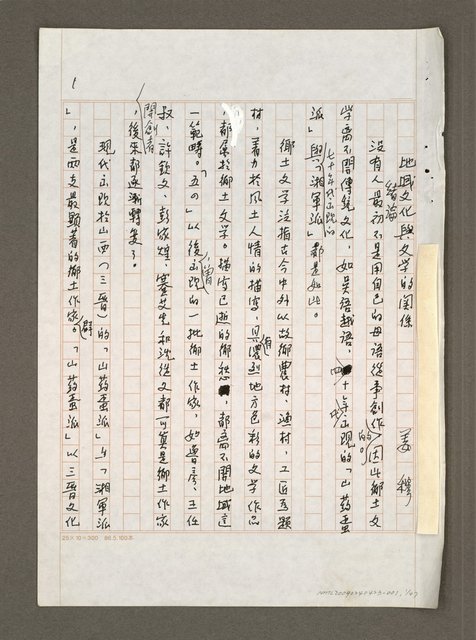 地域文化與文學的關係
緒論
姜穆
沒有人最初不是用自己的母語從事創作的，因此鄉土文
學離不開傳統文化，如吳語越語，四十年出現的「山药蛋
派」與七十年代出現的「湘軍派」都是如此。
鄉土文學泛指古今中外以故鄉農村、漁村、工區為題
材，着力於風土人情的描寫，具有濃烈地方色彩的文學作品
，都屬於鄉土文學。描寫已逝的鄉愁，都離不開地域這
一範疇。「五四」以後，曾出現的一批鄉土作家，如魯彥、王任
叔、許欽文、彭家煌、蹇艾先和沈從文都可算是鄉土作家
開創者，後來都逐漸轉变了。
現代出現於山西（三晉）的「山药蛋派」与「湘軍派
」，是兩支最顯著的鄉土作家群。「山药蛋派」以三晉文化
1
25×10=300 86.5.100本
NMTL20090240423-001, 1/47